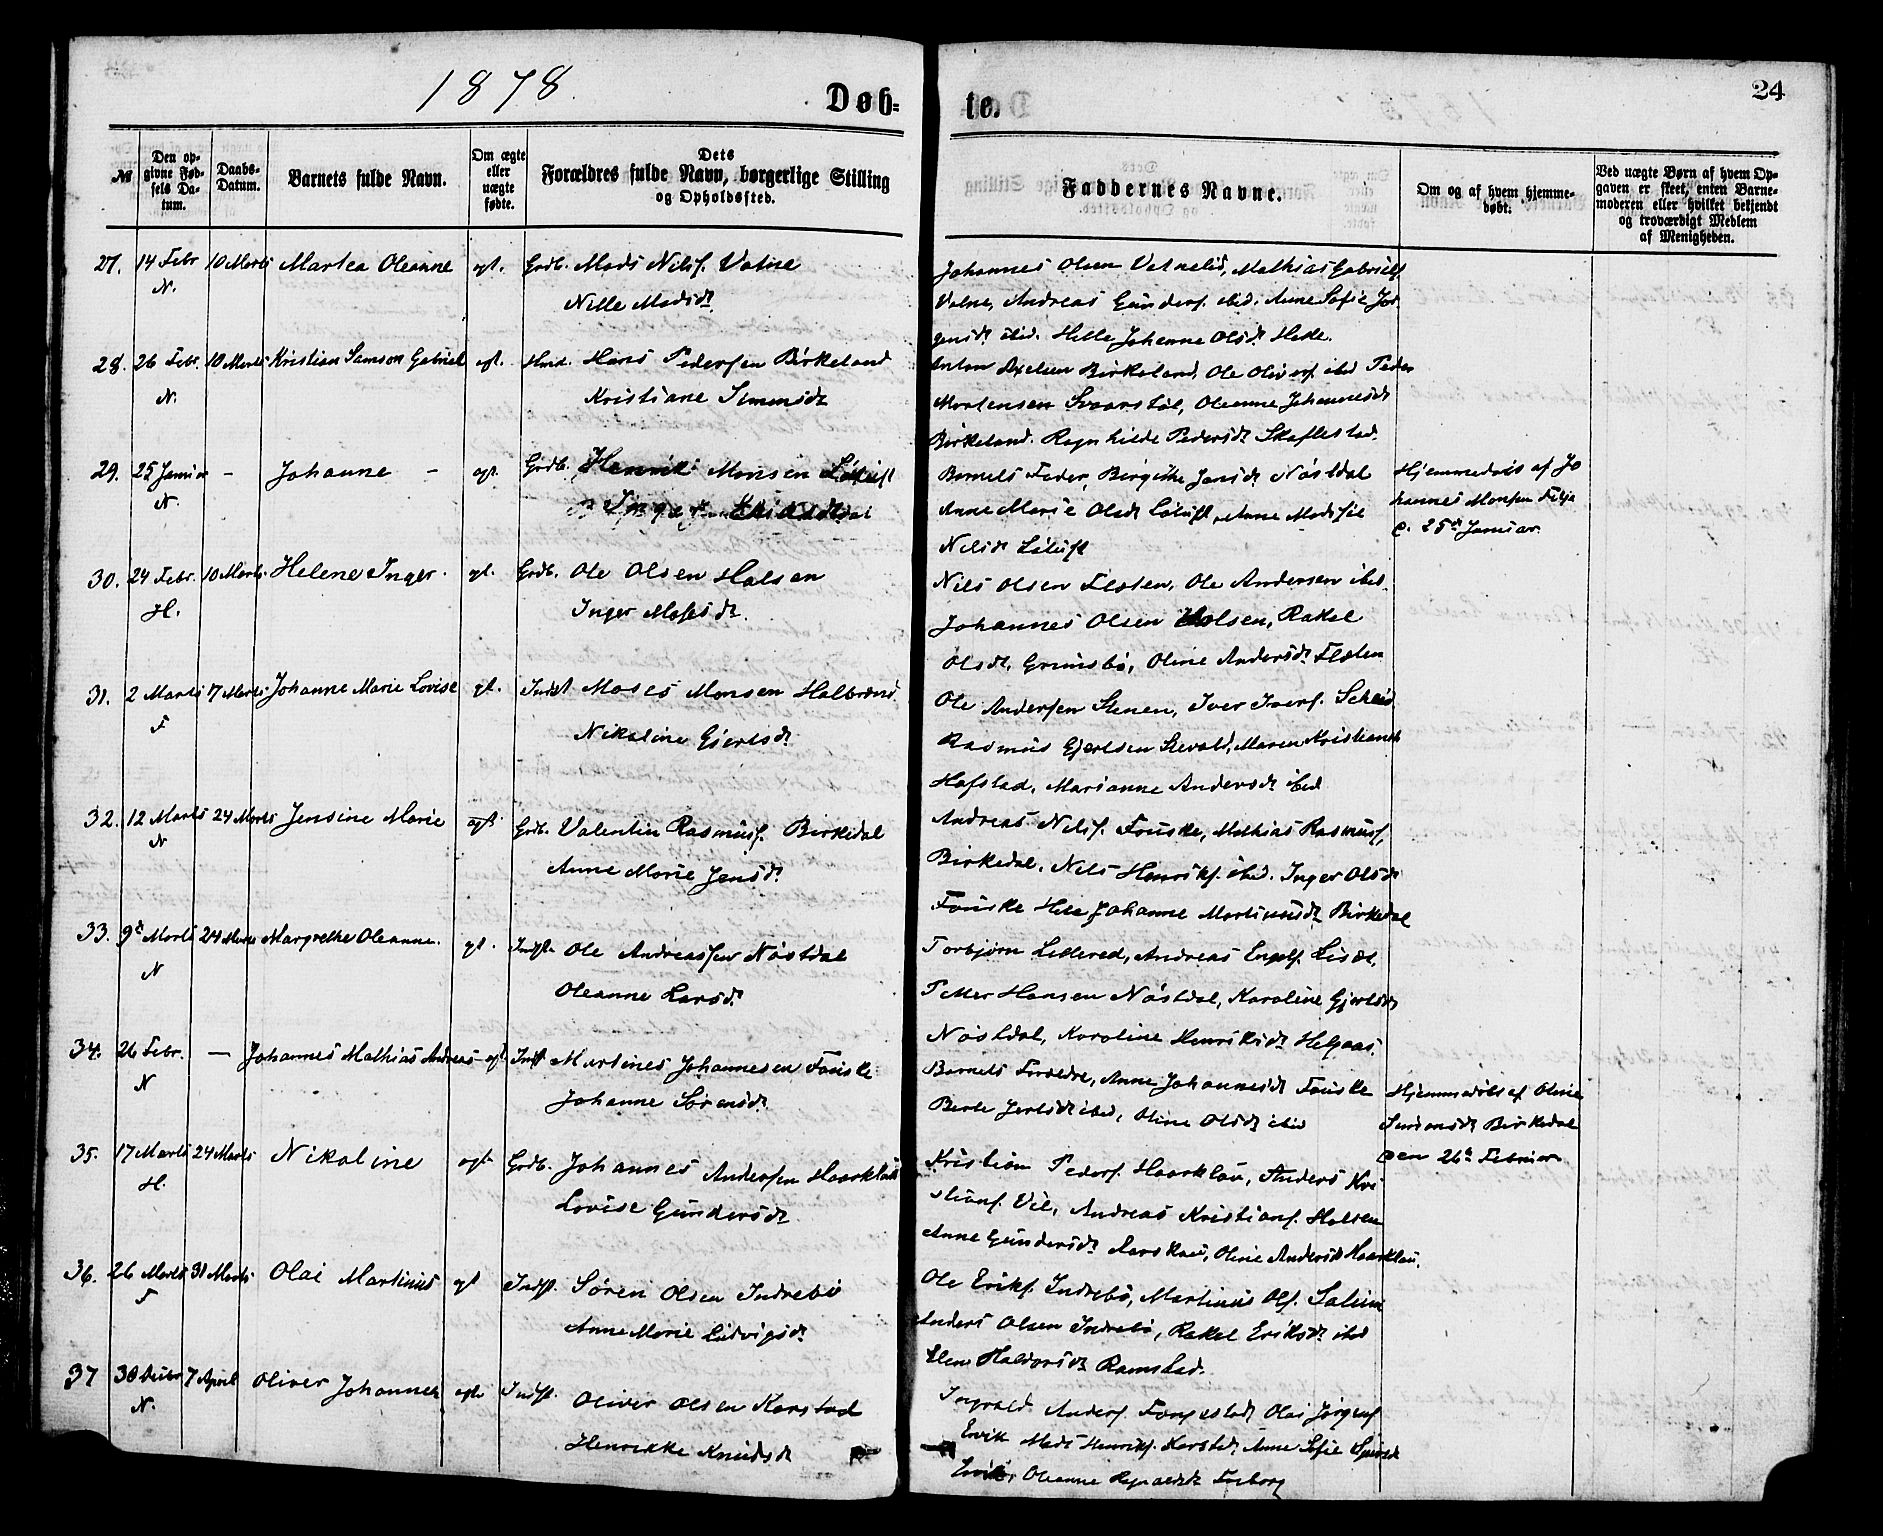 1878.
Døb=
te.
24
№
Den op-
givne Fød-
sels Da-
tum.
Daabs-
Datum.
Barnets fulde Navn.
Om ægte
eller
uægte
fødte.
Dets
Forældres fulde Navn, borgerlige Stilling
og Opholdssted.
Faddernes Navne.
Om og af hvem hjemme-
døbt.
Ved uægte Børn af hvem Op-
gaven er skeet, enten Barne-
moderen eller hvilket bekjendt
og troværdigt Medlem
af Menigheden.
27. 14 Febr 10 Marts Martea Oleanne egt. Grdb. Mads Nilsf. Vatne
N. Nille Madsdr.
Johannes Olsen Vatnelid, Mathias Gabrielf.
Vatne, Andreas Gunderf. ibid. Anne Sofie Jør
gensdr. ibid. Helle Johanne Olsdr.
28. 26 Febr. 10 Marts Kristian Samson Gabriel egt. Hans Pedersen Birkeland
N. Kristiane Simonsdr
Anton Birkeland, Ole Oliverf. ibid Peder
Mortensen Svarstøl, Oleanne Johannesdr
Birkeland. Ragnhilde Pedersdr
29. 25 Januar – Johanne – egt. Grdb. Henrik Monsen
N. Inger
Barnets Fader, Birgithe Jansdr Nøstdal
Anne Marie Olsdr Anne Madsine
Nilsdr
Hjemmedøbt af Jo
hannes Monsen
d. 25de Januar
30. 24 Febr. 10 Marts. Helene Inger. egt. Grdb. Ole Olsen Halsen
H. Inger Mosesdr.
Nils Olsen Fløten, Ole Andersen ibid.
Johannes Olsen Halsen, Rakel
Olsdr. Grimsbø, Oline Andersdr Fløten
31. 2 Marts 17 Marts Johanne Marie Lovise egt. Indst Moses Monsen Halbrend
F Nikoline Gjertsdr
Ole Andersen Stenen, Iver Iverf.
Rasmus Gjertsen Maren Kristiansdr
Hafstad, Marianne Andersdr ibid
32. 12 Marts 24 Marts Jensine Marie egt. Grdb. Valentin Rasmusf. Birkedal
N Anne Marie Jensdr
Andreas Nilsf. Fouske, Mathias Rasmusf.
Birkedal, Nils Henrikf. ibid. Inger Olsdr
Fouske Johanne Martinusdr Birkedal
33. 9de Marts 24 Marts Margrethe Oleanne. egt. Indst. Ole Andreassen Nøstdal
N Oleanne Larsdr.
Torbjørn Andreas
Petter Hansen Nøstdal, Karoline Gjertsdr
Nøstdal, Karoline Henriksdr Helgaas.
34. 26 Febr. – Johannes Mathias Andreas egt. Indst Martines Johannesen Fouske
N Johanne Sørensdr
Barnets Forældre, Anne Johannesdr Fouske
Berte ibid, Oline Olsdr ibid
Hjemmedøbt af Oline
Simonsdr Birkedal
den 26de Februar
35. 17 Marts 24 Marts Nikoline egt. Grdb. Johannes Andersen Haarklau
H. Lovise Gundersdr
Kristian Pederf. Haarklau, Anders Kri
stianf. Vie, Andreas Kristianf. Halsen
Anne Gundersdr Oline Andersdr Haarklau.
36. 26 Marts 31 Marts Olai Martinus egt Indst. Søren Olsen Indrebø
F Anne Marie Ludvigsdr
Ole Erikf. Indrebø, Martinus Olf.
Anders Olsen Indrebø, Rakel Eriksdr ibid
Haldorsdr Ramstad.
37 30 7 April Oliver Johannes egt. Indst. Oliver Olsen Karstad
N. Henrikke Knudsdr
Ingvald Anderf. Olai Jørgenf.
Ervik Mads Henrikf. Karstad, Anne Sofie
Ervik, Oleanne